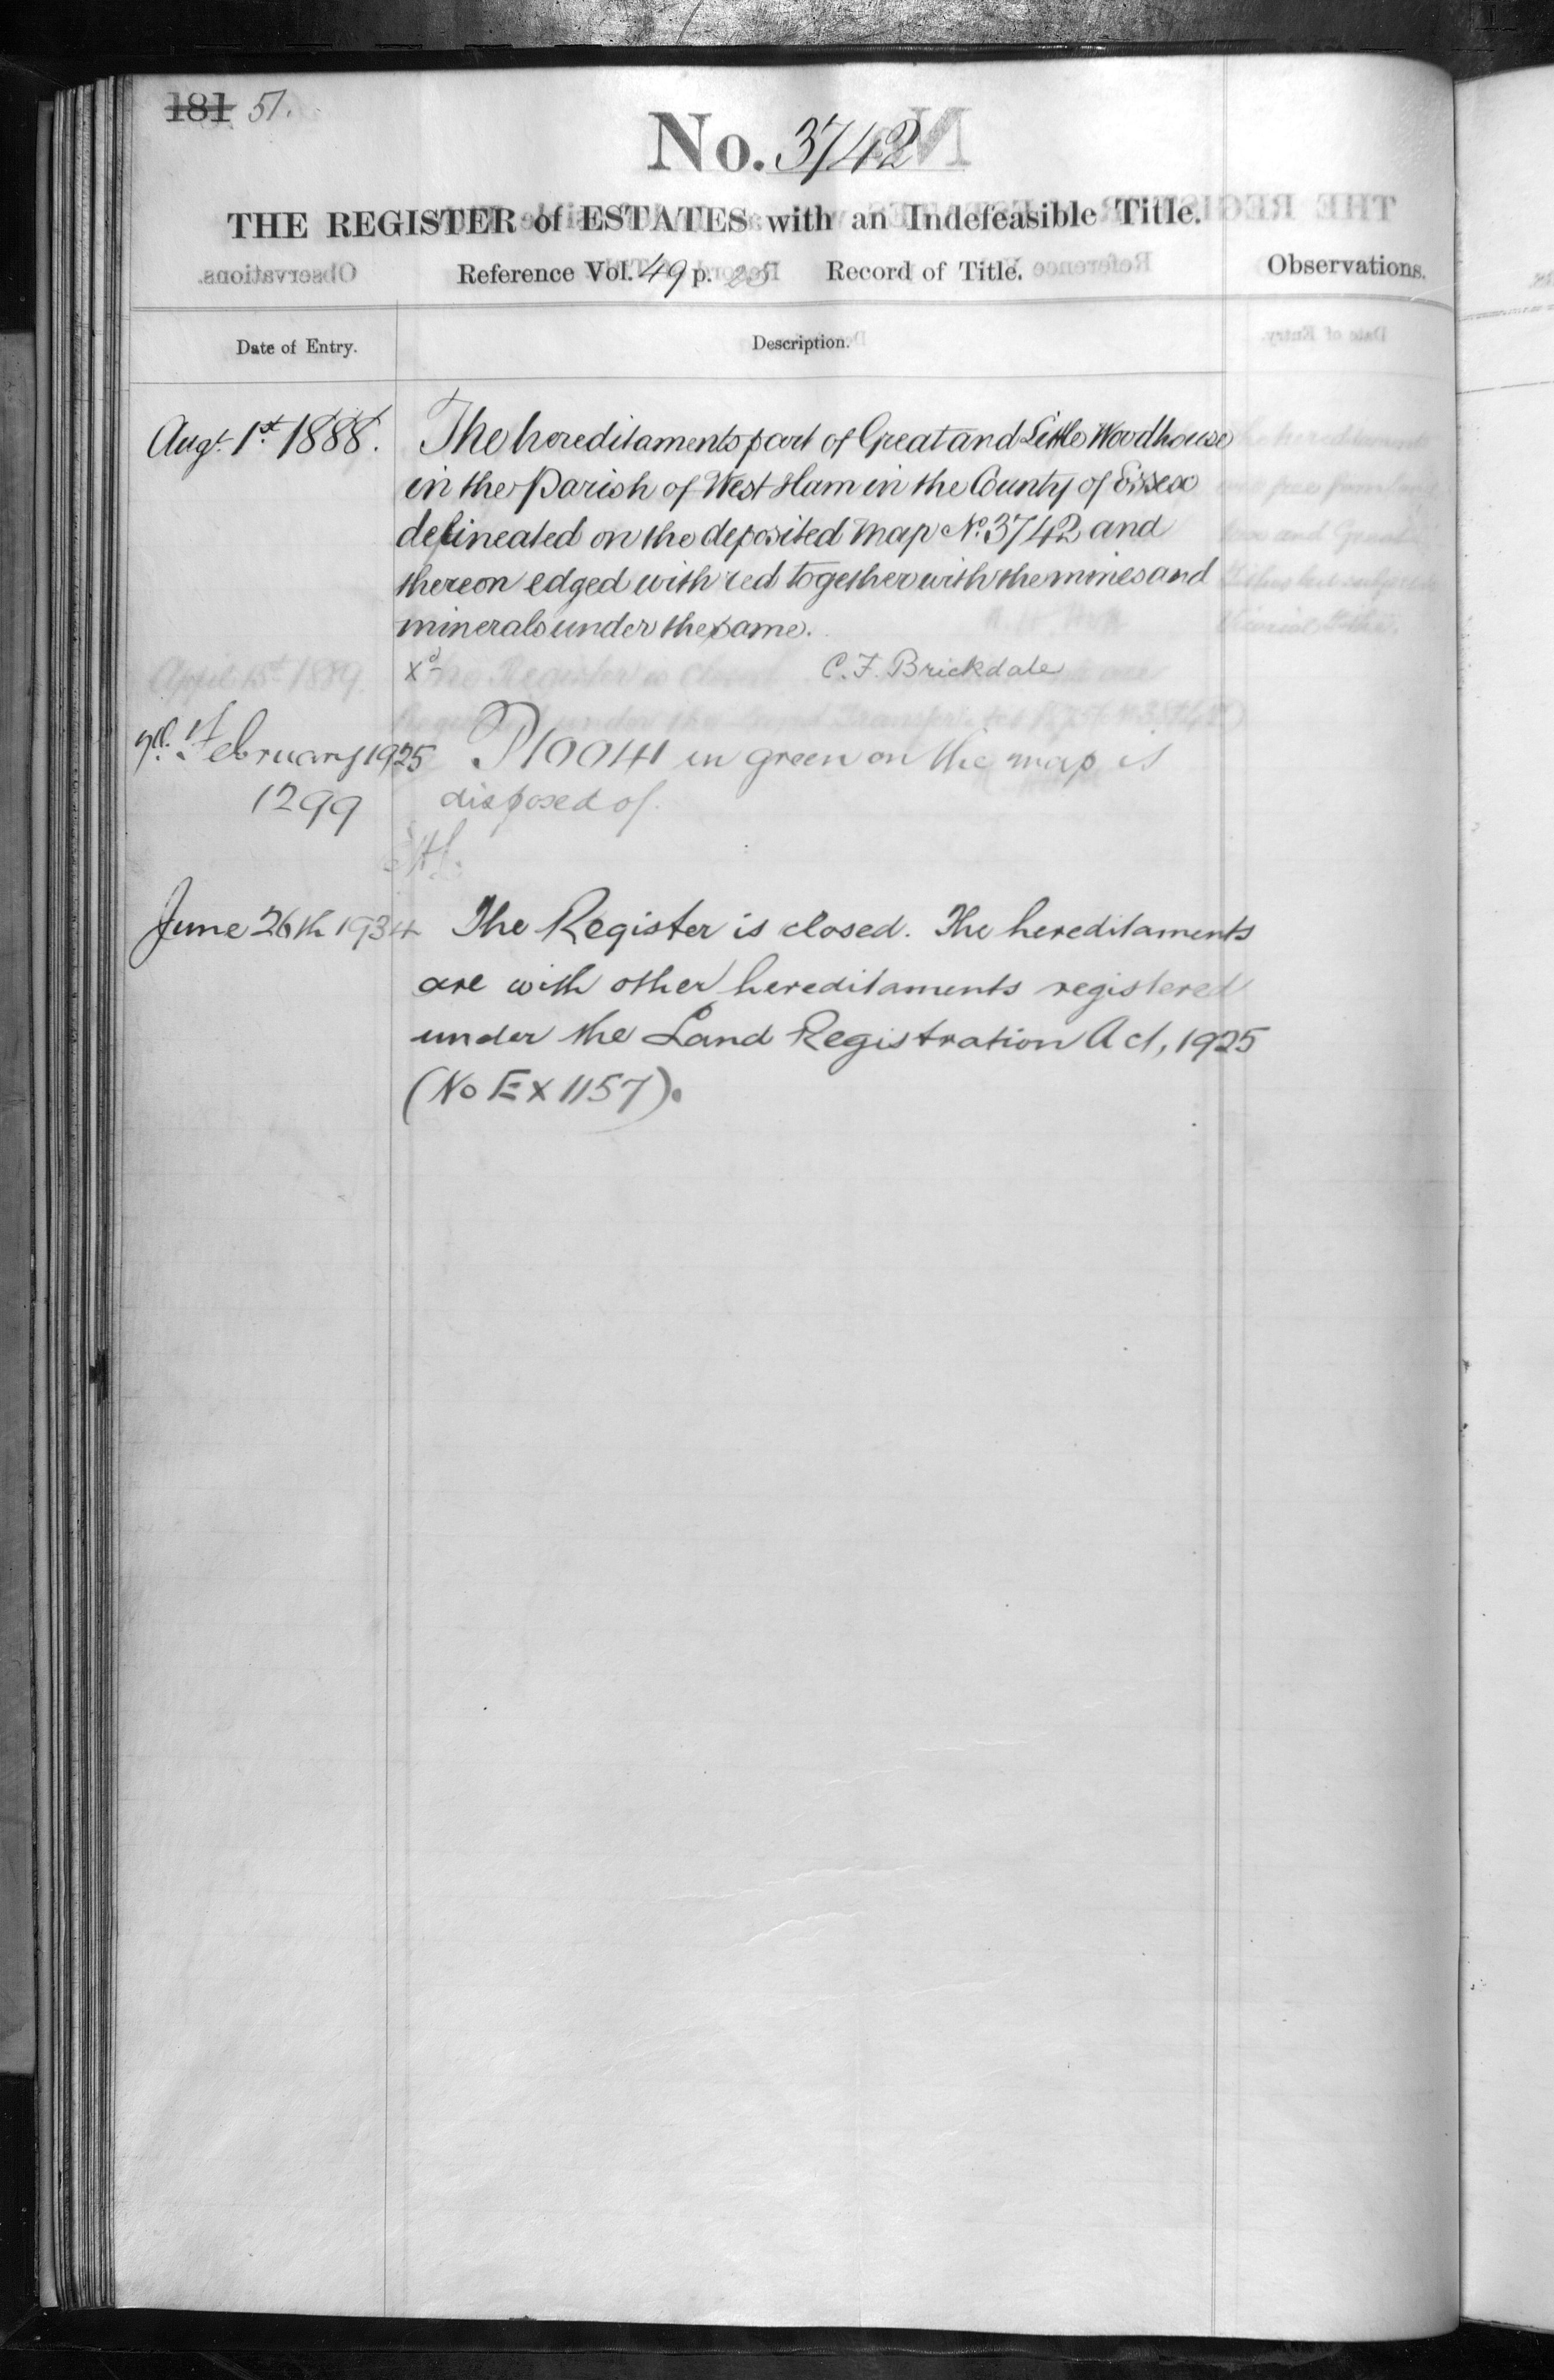 181 51.
No. 3742
THE REGISTER of ESTATES with an Indefeasible Title.
Reference Vol. 49 p. 25 Record of Title.
Observations.
Date of Entry.
Description.
Augt. 1st. 1888.
The hereditaments part of Great and Little Woodhouse
in the Parish of West Ham in the County of Essex
delineated on the deposited Map No. 3742 and
thereon edged with red together with the mines and
minerals under the same.
Xd C. F. Brickdale
February 1925
1299
P10041 in green on the map is
disposed of.
June 26th 1934
The Register is closed. The hereditaments
are with other hereditaments registered
under the Land Registration Act, 1925
(No EX 1157).